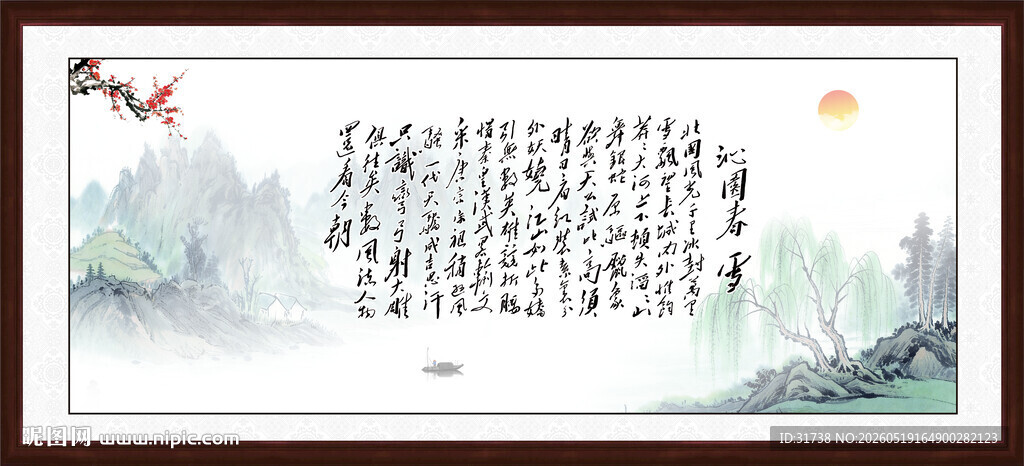 沁園春 雪
北國風光千里冰封萬里
雪飄望長城內外惟餘
莽〻大河上下頓失滔〻山
舞銀蛇原驅臘象
欲與天公試比高須
晴日看紅裝素裹分
外妖嬈江山如此多嬌
引無數英雄競折腰
惜秦皇漢武略輸文
采唐宗宋祖稍遜風
騷一代天驕成吉思汗
只識彎弓射大雕
俱往矣數風流人物
還看今朝
昵图网 www.nipic.com
ID:31738 NO:20260519164900282123